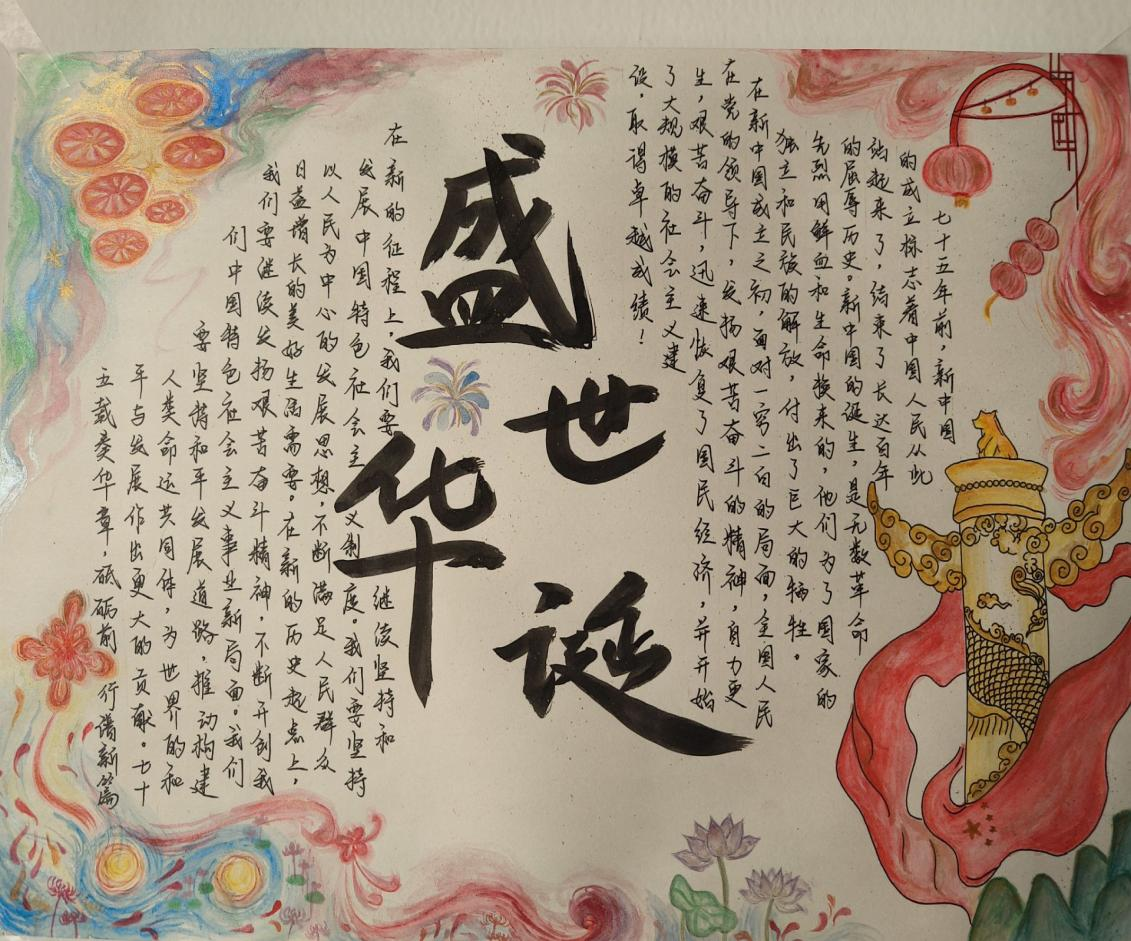 盛世华诞
七十五年前，新中国
的成立标志着中国人民从此
站起来了，结束了长达百年
的屈辱历史。新中国的诞生，是无数革命
先烈用鲜血和生命换来的，他们为了国家的
独立和民族的解放，付出了巨大的牺牲。
在新中国成立之初，面对一穷二白的局面，全国人民
在党的领导下，发扬艰苦奋斗的精神，自力更
生，艰苦奋斗，迅速恢复了国民经济，并开始
了大规模的社会主义建
设，取得卓越成绩！
在新的征程上，我们要继续坚持和
发展中国特色社会主义制度。我们要坚持
以人民为中心的发展思想，不断满足人民群众
日益增长的美好生活需要。在新的历史起点上，
我们要继续发扬艰苦奋斗精神，不断开创我
们中国特色社会主义事业新局面。我们
要坚持和平发展道路，推动构建
人类命运共同体，为世界的和
平与发展作出更大的贡献。七十
五载奏华章，砥砺前行谱新篇